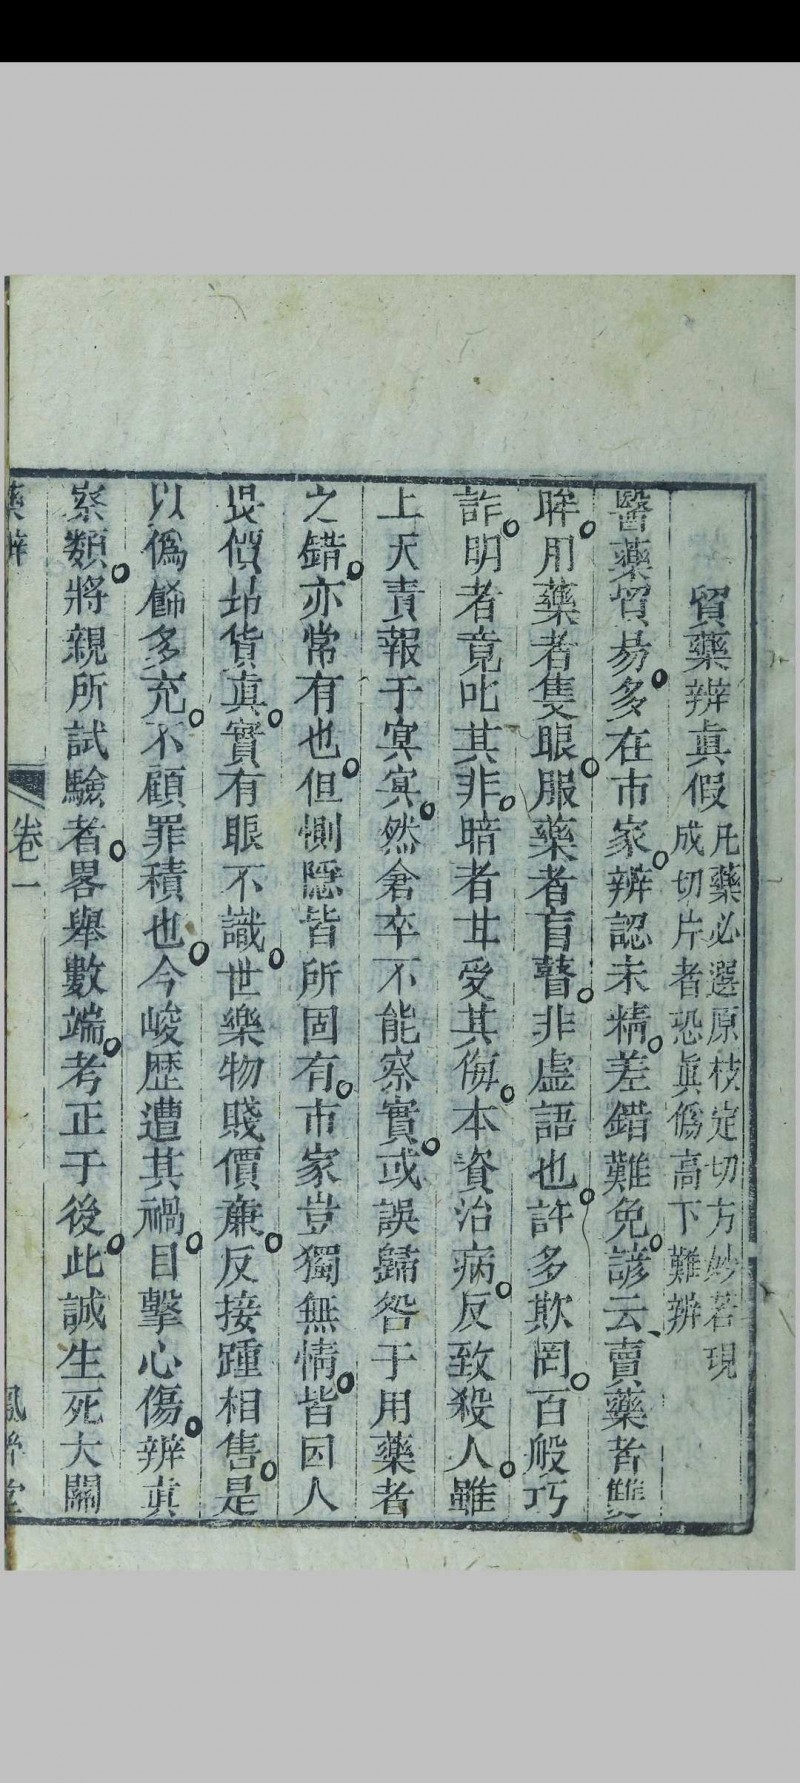 貿藥辨眞假
凡藥必選原枝定切方妙若現
成切片者恐眞僞高下難辨
醫藥貿易多在市家辨認未精差錯難免諺云賣藥者雙
眸用藥者隻眼服藥者盲瞽非虛語也許多欺罔百般巧
詐明者竟叱其非暗者甘受其侮本資治病反致殺人雖
上天責報于冥冥然倉卒不能察實或誤歸咎于用藥者
之錯亦常有也但惻隱皆所固有市家豈獨無情皆因人
畏價坮貨眞實有眼不識世樂物賤價亷反接踵相售是
以僞餙多充不顧罪積也今峻歷遭其禍目擊心傷辨眞
察類將親所試驗者畧舉數端考正于後此誠生死大關
藥辨
卷一